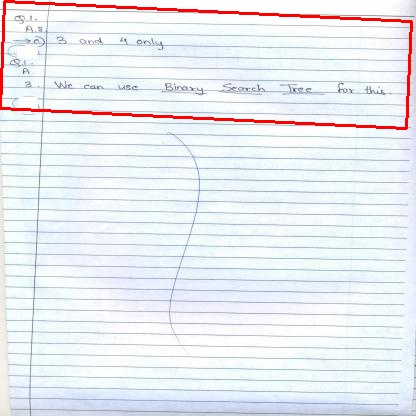 Q.1.
A.2
→ c) 3 and 4 only
Q.1.
A.
3. We can use Binary Search Tree for this.